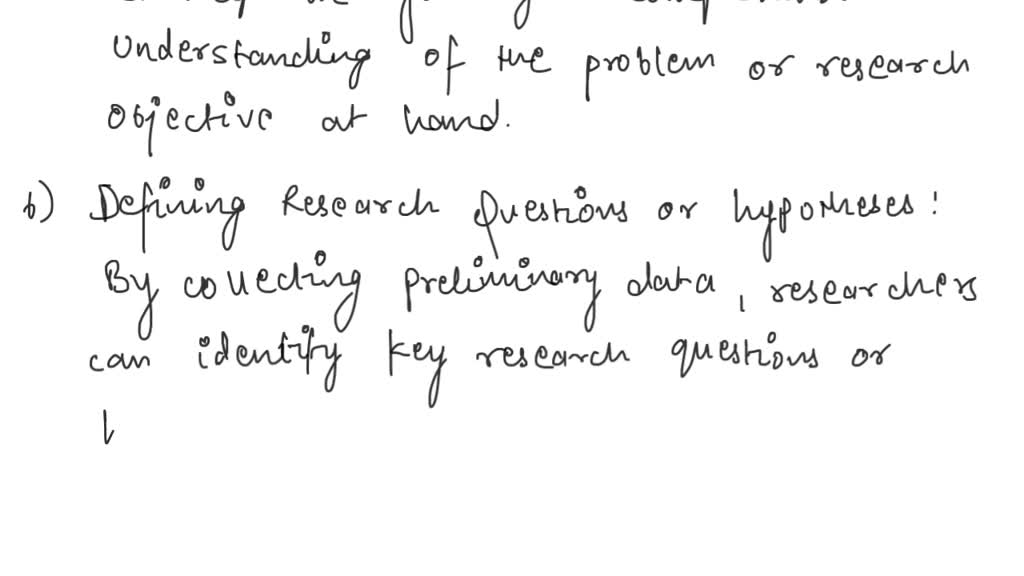 understanding of the problem or research
objective at hand.
b) Defining Research Questions or hypotheses:
By collecting preliminary data, researchers
can identify key research questions or